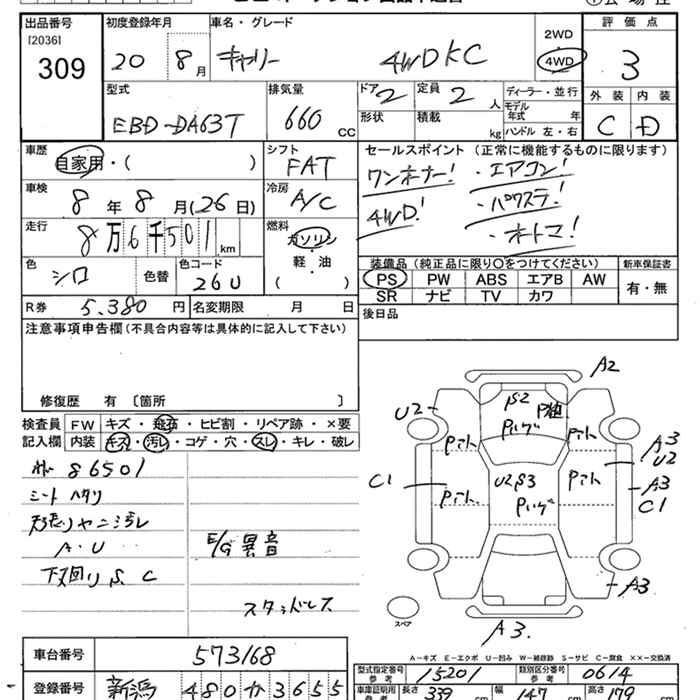 出品番号 初度登録年月 車名・グレード 評価点
[2036] 309 20 8月 キャリー 4WD KC 2WD 4WD 3
型式 排気量 ドア 2 定員 2人 ディーラー・並行 外装 内装
EBD-DA63T 660 CC 形状 積載 kg モデル年式 年 ハンドル 左・右 C D
車歴 シフト セールスポイント (正常に機能するものに限ります)
自家用・( ) FAT ワンオーナー! ・エアコン!
車検 8年8月(26日) 冷房 A/C 4WD! ・パワステ!
走行 8万6千501km 燃料 ガソリン 軽・油 ( ) ・オートマ!
色 シロ 色替 色コード 26U
装備品 (純正品に限り〇をつけてください) 新車保証書
PS PW ABS エアB AW 有・無
SR ナビ TV カワ
R券 5.380円 名変期限 月 日 後日品
注意事項申告欄(不具合内容等は具体的に記入して下さい)
修復歴 有 〔箇所 〕
検査員 FW キズ・飛石・ヒビ割・リペア跡・×要
記入欄 内装 キズ・汚レ・コゲ・穴・スレ・キレ・破レ
86501
シートヘタリ
天張りヤニ汚レ
A.U
下回りS.C
E/G異音
スタッドレス
A2
U2
S2
Pハゲ
A3
U2
C1
U2 S3
Pハゲ
A3
C1
A3
スペア
A3.
A-キズ E-エクボ U-凹み W-補修跡 S-サビ C-腐食 ××-交換済
車台番号 573168
型式指定番号 参考 15201 類別区分番号 参考 0614
登録番号 新潟 480 か 3655
車庫証明用 参考 長さ 339 cm 幅 147 cm 高さ